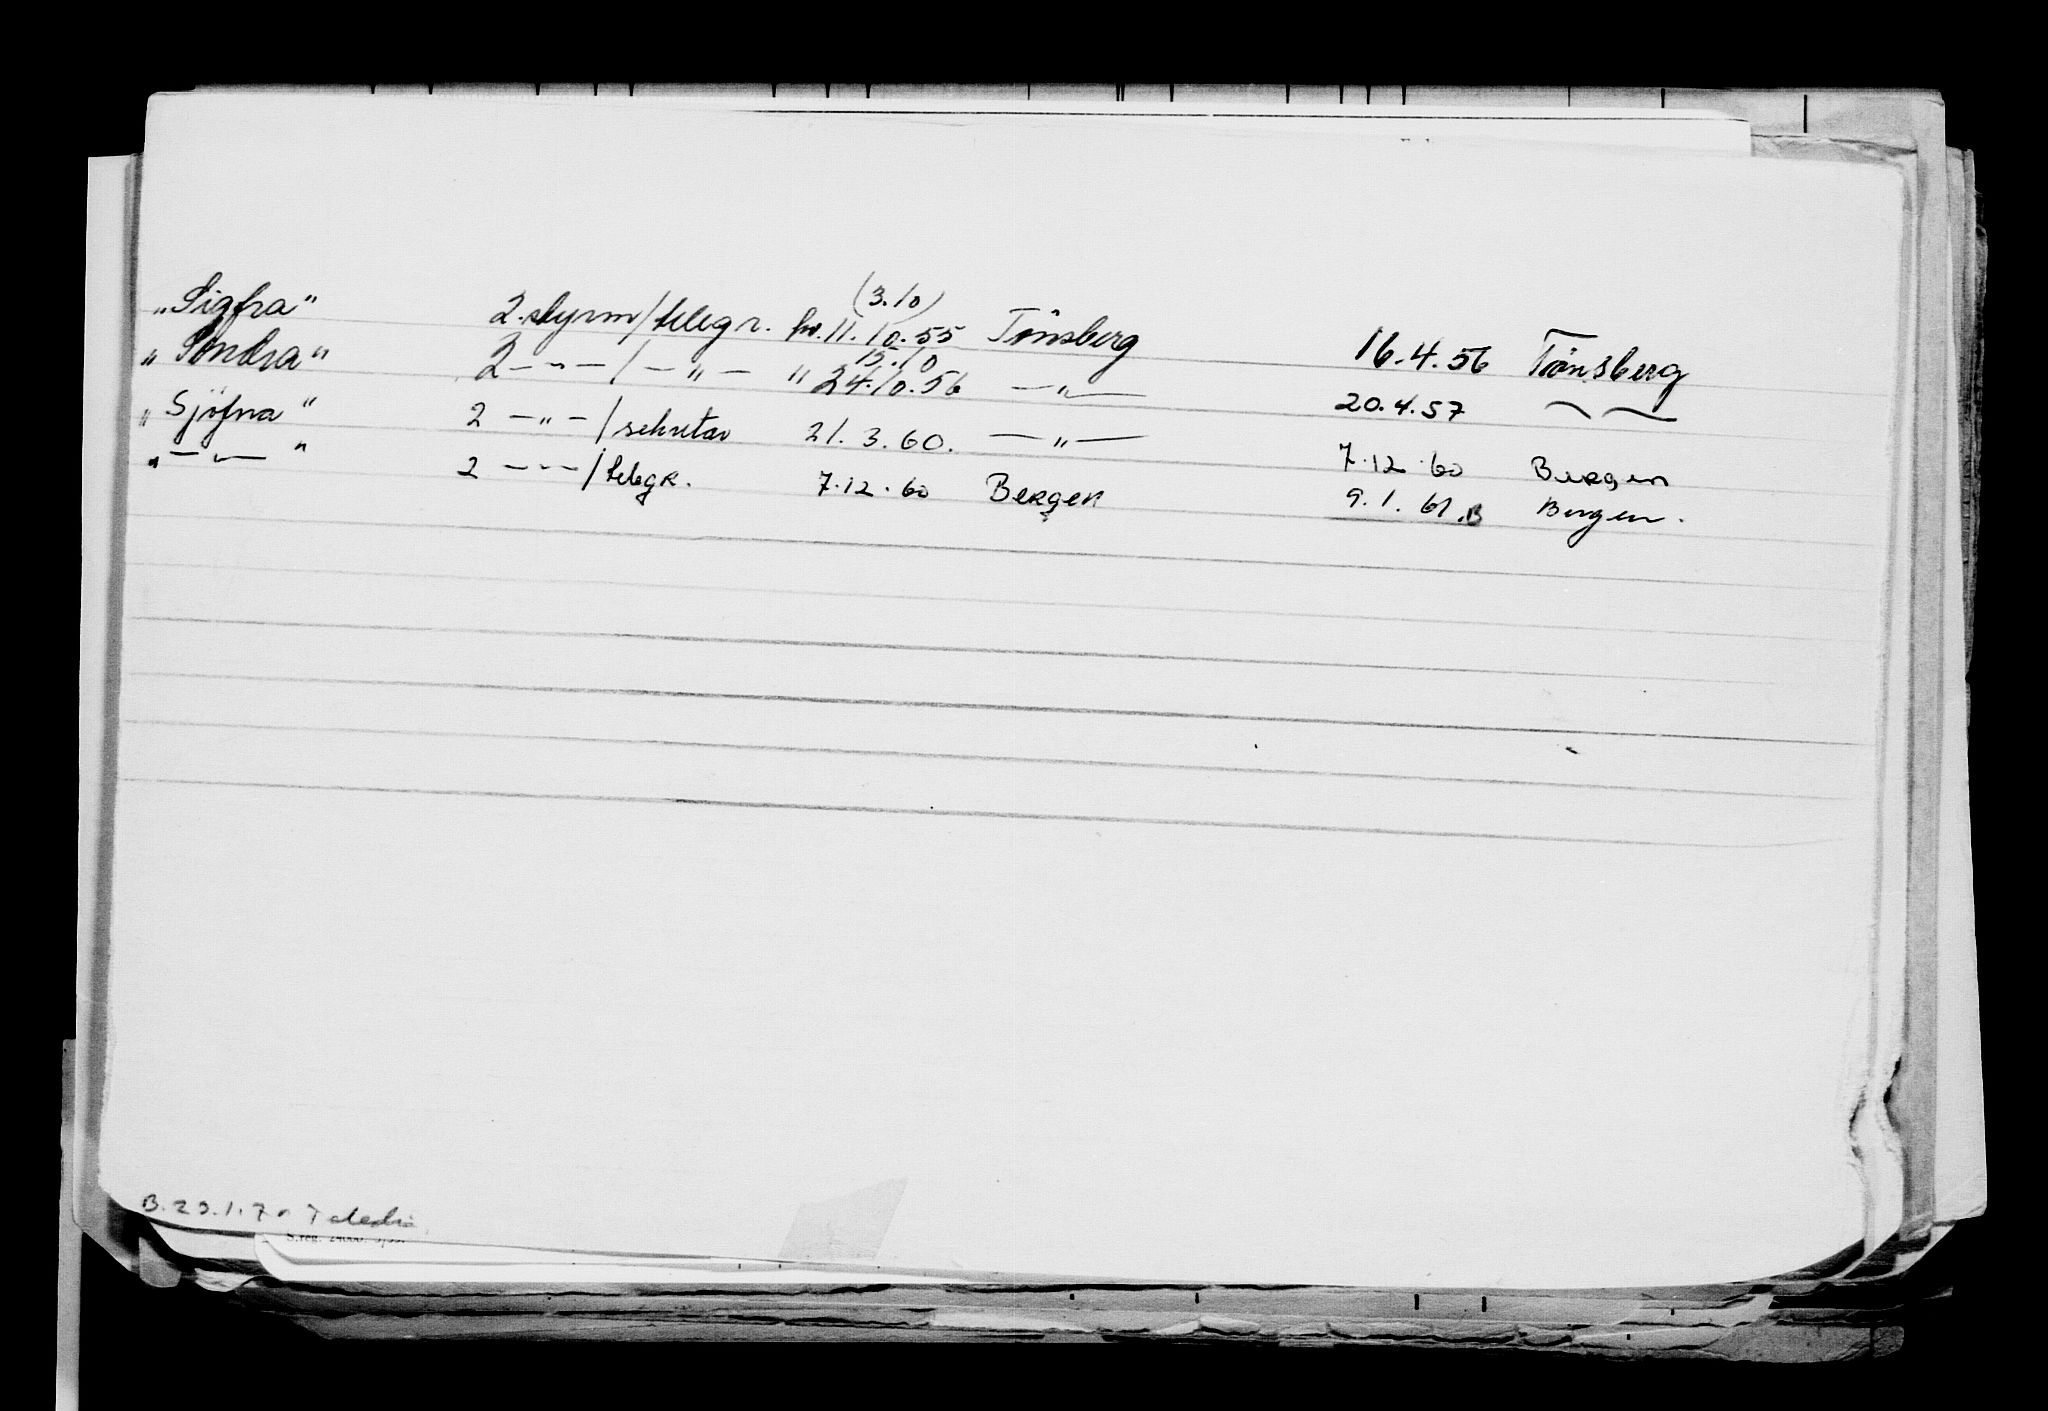 „Sigfra" 2. styrm/telegr. hv. 11.10.55 (3.10) Tønsberg 16.4.56 Tønsberg
„Sondra" 2 — " — / — " — " 24.10.56 15.10 — " — 20.4.57 — " —
„Sjøfna" 2 — " — / sekretær 21.3.60. — " — 7.12.60 Bergen
„ — " — " 2 — " — / telegr. 7.12.60 Bergen 9.1.61.B Bergen.
B. 29.1.70
S.reg.